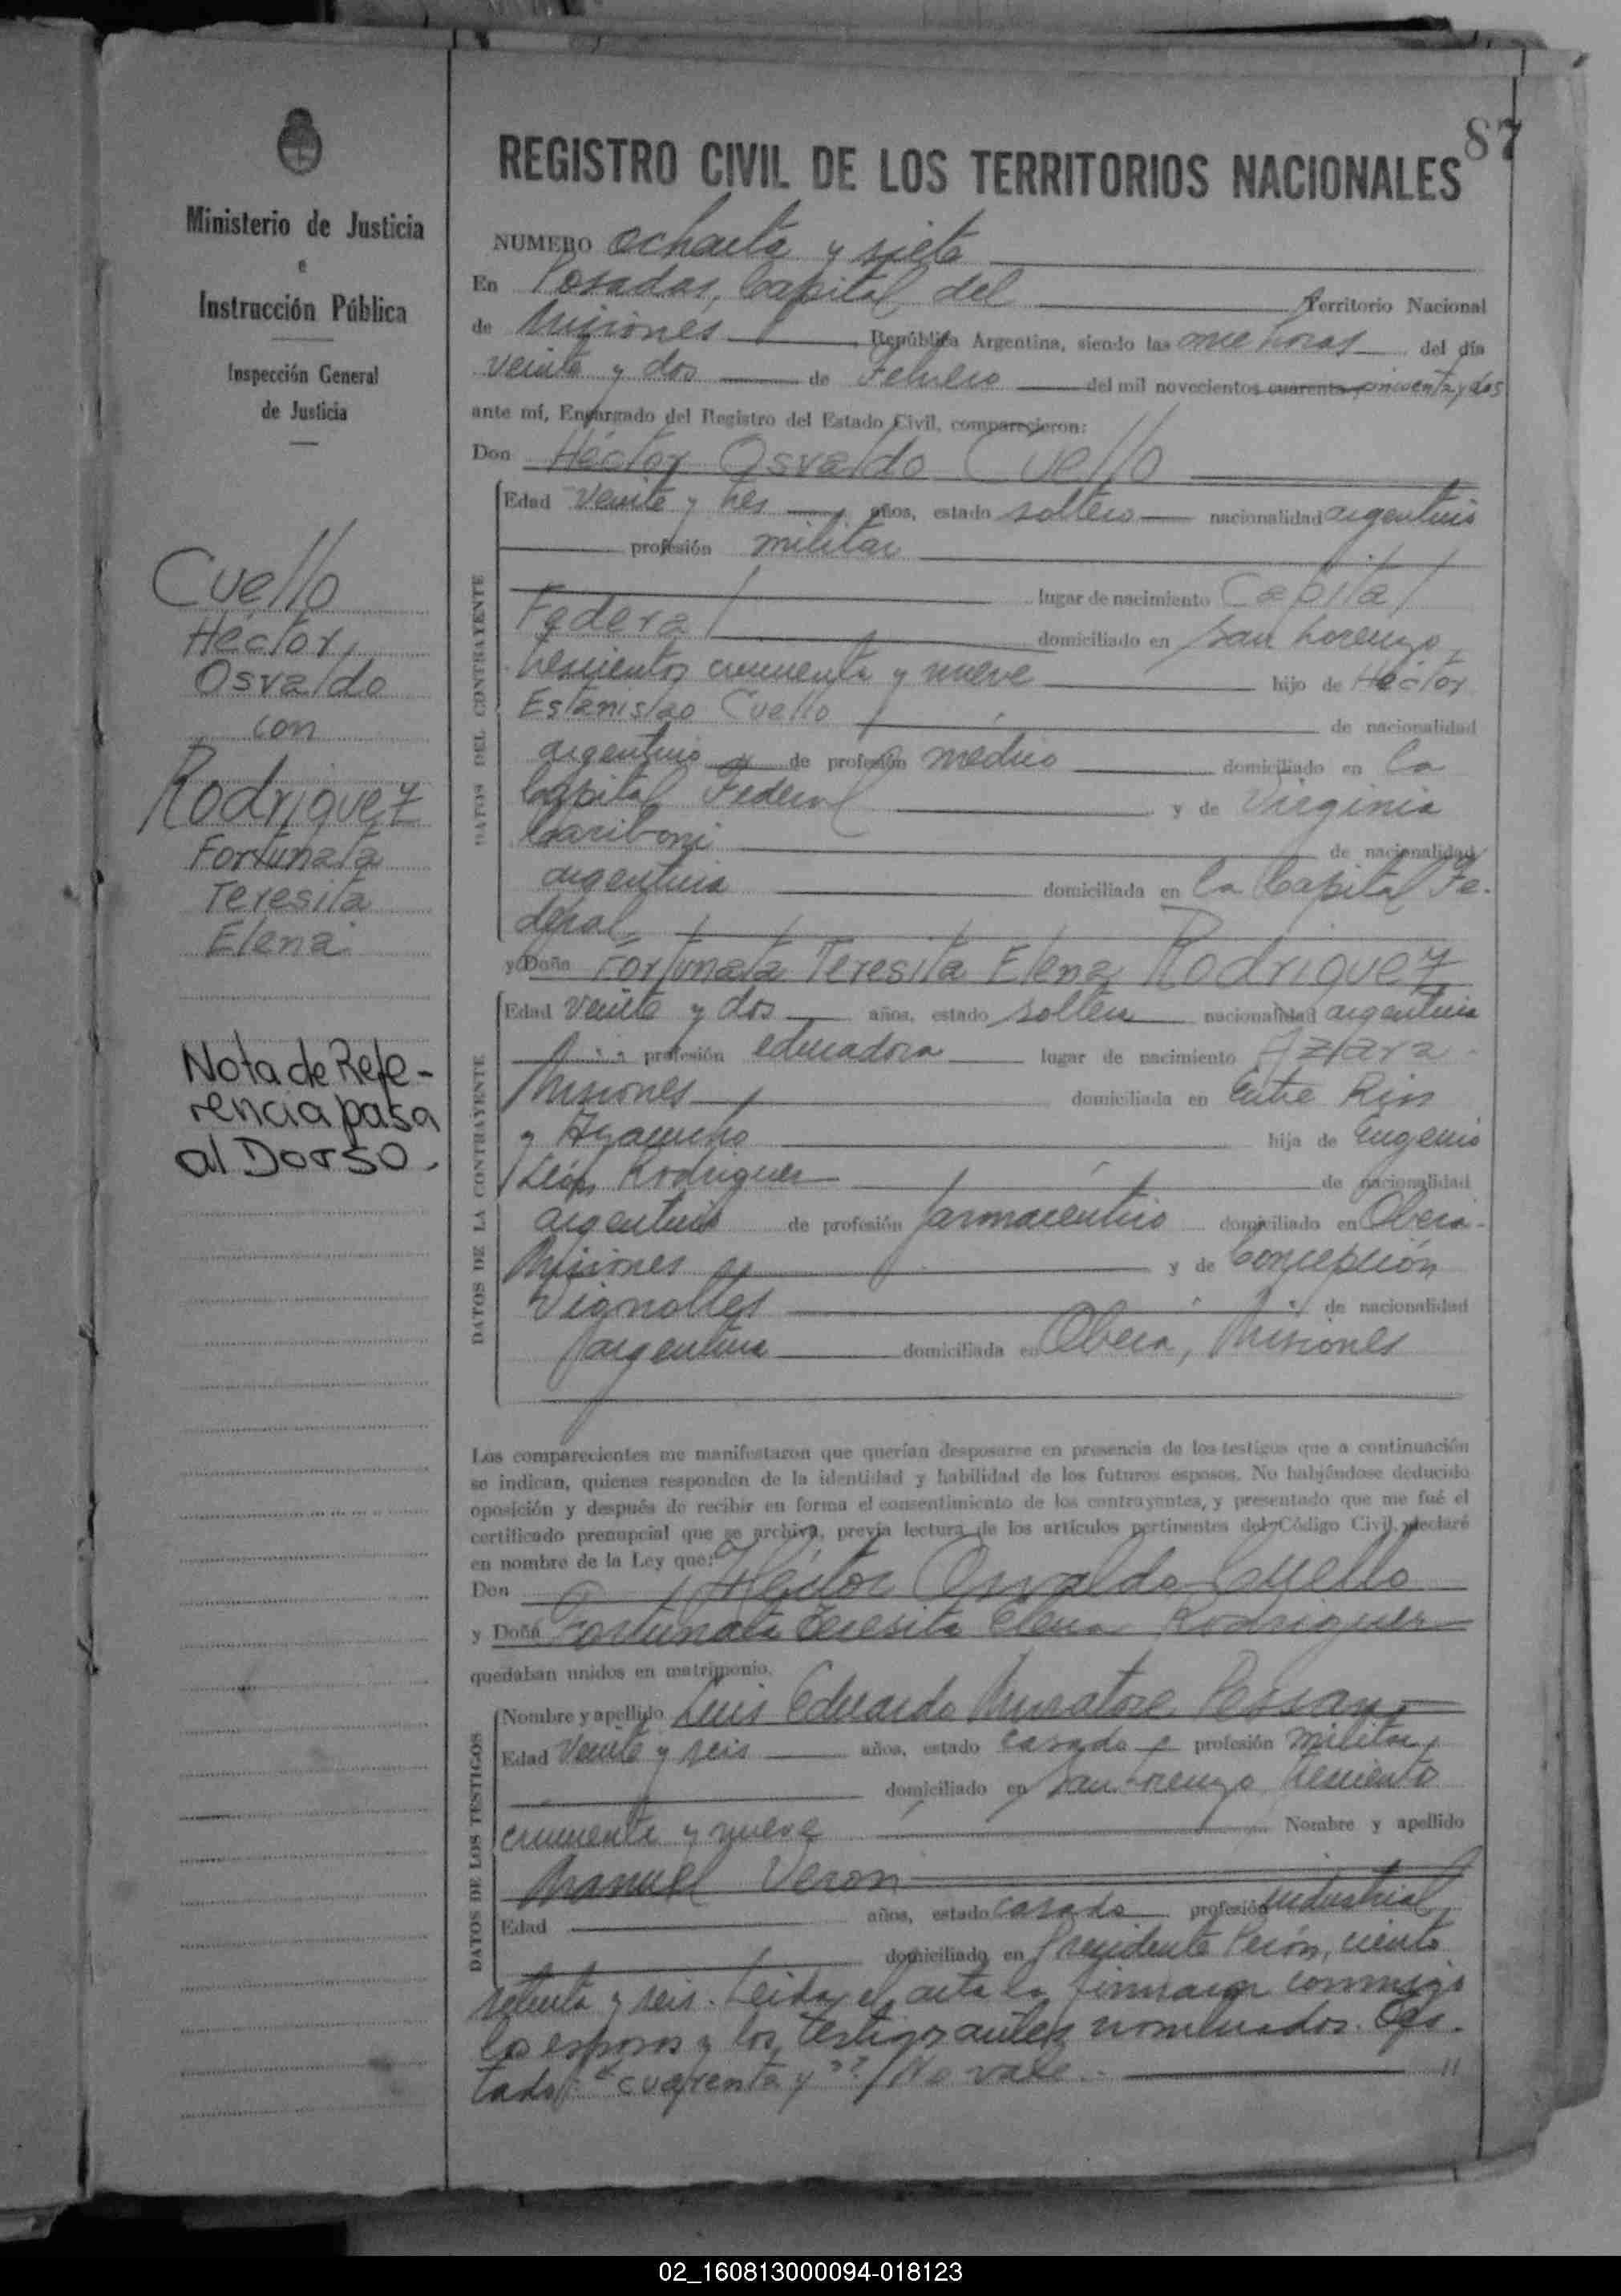 87
Ministerio de Justicia
e
Instrucción Pública
Inspección General
de Justicia
Cuello
Héctor
Osvaldo
con
Rodriguez
Fortunata
Teresita
Elena
Nota de Refe-
rencia pasa
al Dorso.
REGISTRO CIVIL DE LOS TERRITORIOS NACIONALES
NUMERO ochenta y siete
En Posadas, Capital del Territorio Nacional
de Misiones República Argentina, siendo las once horas del día
veinte y dos de Febrero del mil novecientos cuarenta cincuenta y dos
ante mí, Encargado del Registro del Estado Civil, comparecieron:
Don Héctor Osvaldo Cuello
DATOS DEL CONTRAYENTE
Edad veinte y tres años, estado soltero nacionalidad argentino
profesión militar
lugar de nacimiento Capital
Federal domiciliado en San Lorenzo
trescientos cincuenta y nueve hijo de Héctor
Estanislao Cuello de nacionalidad
argentino de profesión médico domiciliado en la
Capital Federal y de Virginia
Cariboni de nacionalidad
argentina domiciliada en la Capital Fe-
deral
y Doña Fortunata Teresita Elena Rodriguez
DATOS DE LA CONTRAYENTE
Edad veinte y dos años, estado soltera nacionalidad argentina
profesión educadora lugar de nacimiento Azara
Misiones domiciliada en Entre Rios
y Ayacucho hija de Eugenio
León Rodriguez de nacionalidad
argentino de profesión farmacéutico domiciliado en Oberá-
Misiones y de Concepción
Vignolles de nacionalidad
argentina domiciliada en Oberá, Misiones
Los comparecientes me manifestaron que querían desposarse en presencia de los testigos que a continuación
se indican, quienes responden de la identidad y habilidad de los futuros esposos. No habiéndose deducido
oposición y después de recibir en forma el consentimiento de los contrayentes, y presentado que me fué el
certificado prenupcial que se archiva, previa lectura de los artículos pertinentes del Código Civil, declaré
en nombre de la Ley que:
Don Héctor Osvaldo Cuello
y Doña Fortunata Teresita Elena Rodriguez
quedaban unidos en matrimonio.
DATOS DE LOS TESTIGOS
Nombre y apellido Luis Eduardo Muratore
Edad veinte y seis años, estado casado profesión militar
domiciliado en San Lorenzo trescientos
cincuenta y nueve Nombre y apellido
Manuel Veron
Edad años, estado casado profesión industrial
domiciliado en Presidente Perón, ciento
setenta y seis. Leída el acta la firman conmigo
los esposos y los testigos antes nombrados.
tado: "cuarenta y" No vale.
02_160813000094-018123